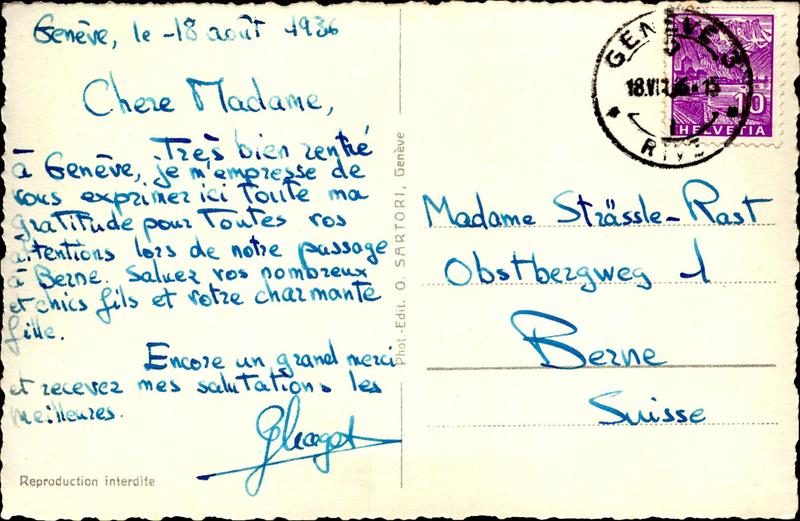 Genève, le -18 août 1936
Chere Madame,
Très bien rentré
à Genève, je m'empresse de
vous exprimer ici toute ma
gratitude pour toutes vos
attentions lors de notre passage
à Berne. Saluez vos nombreux
et chics fils et votre charmante
fille.
Encore un grand merci
et recevez mes salutations les
meilleures.
Reproduction interdite
Phot.-Edit. O. SARTORI, Genève
GENÈVE 3
RIVE
10
HELVETIA
Madame Strässle-Rast
Obstbergweg 1
Berne
Suisse